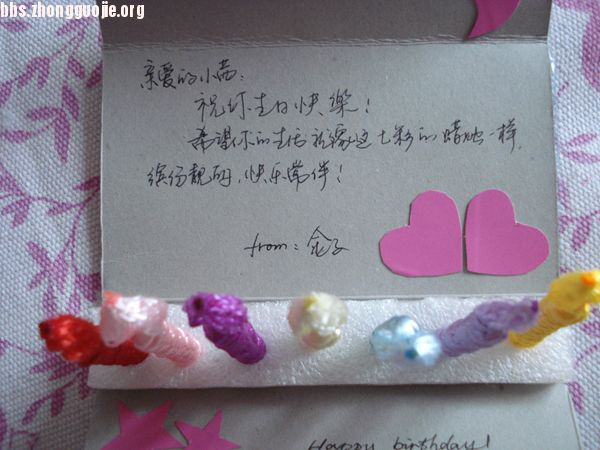 bbs.zhongguojie.org
亲爱的小茜：
祝你生日快樂！
希望你的生活就像这七彩的蜡烛一样，
缤纷靓丽，快乐常伴！
from：金子
Happy birthday!